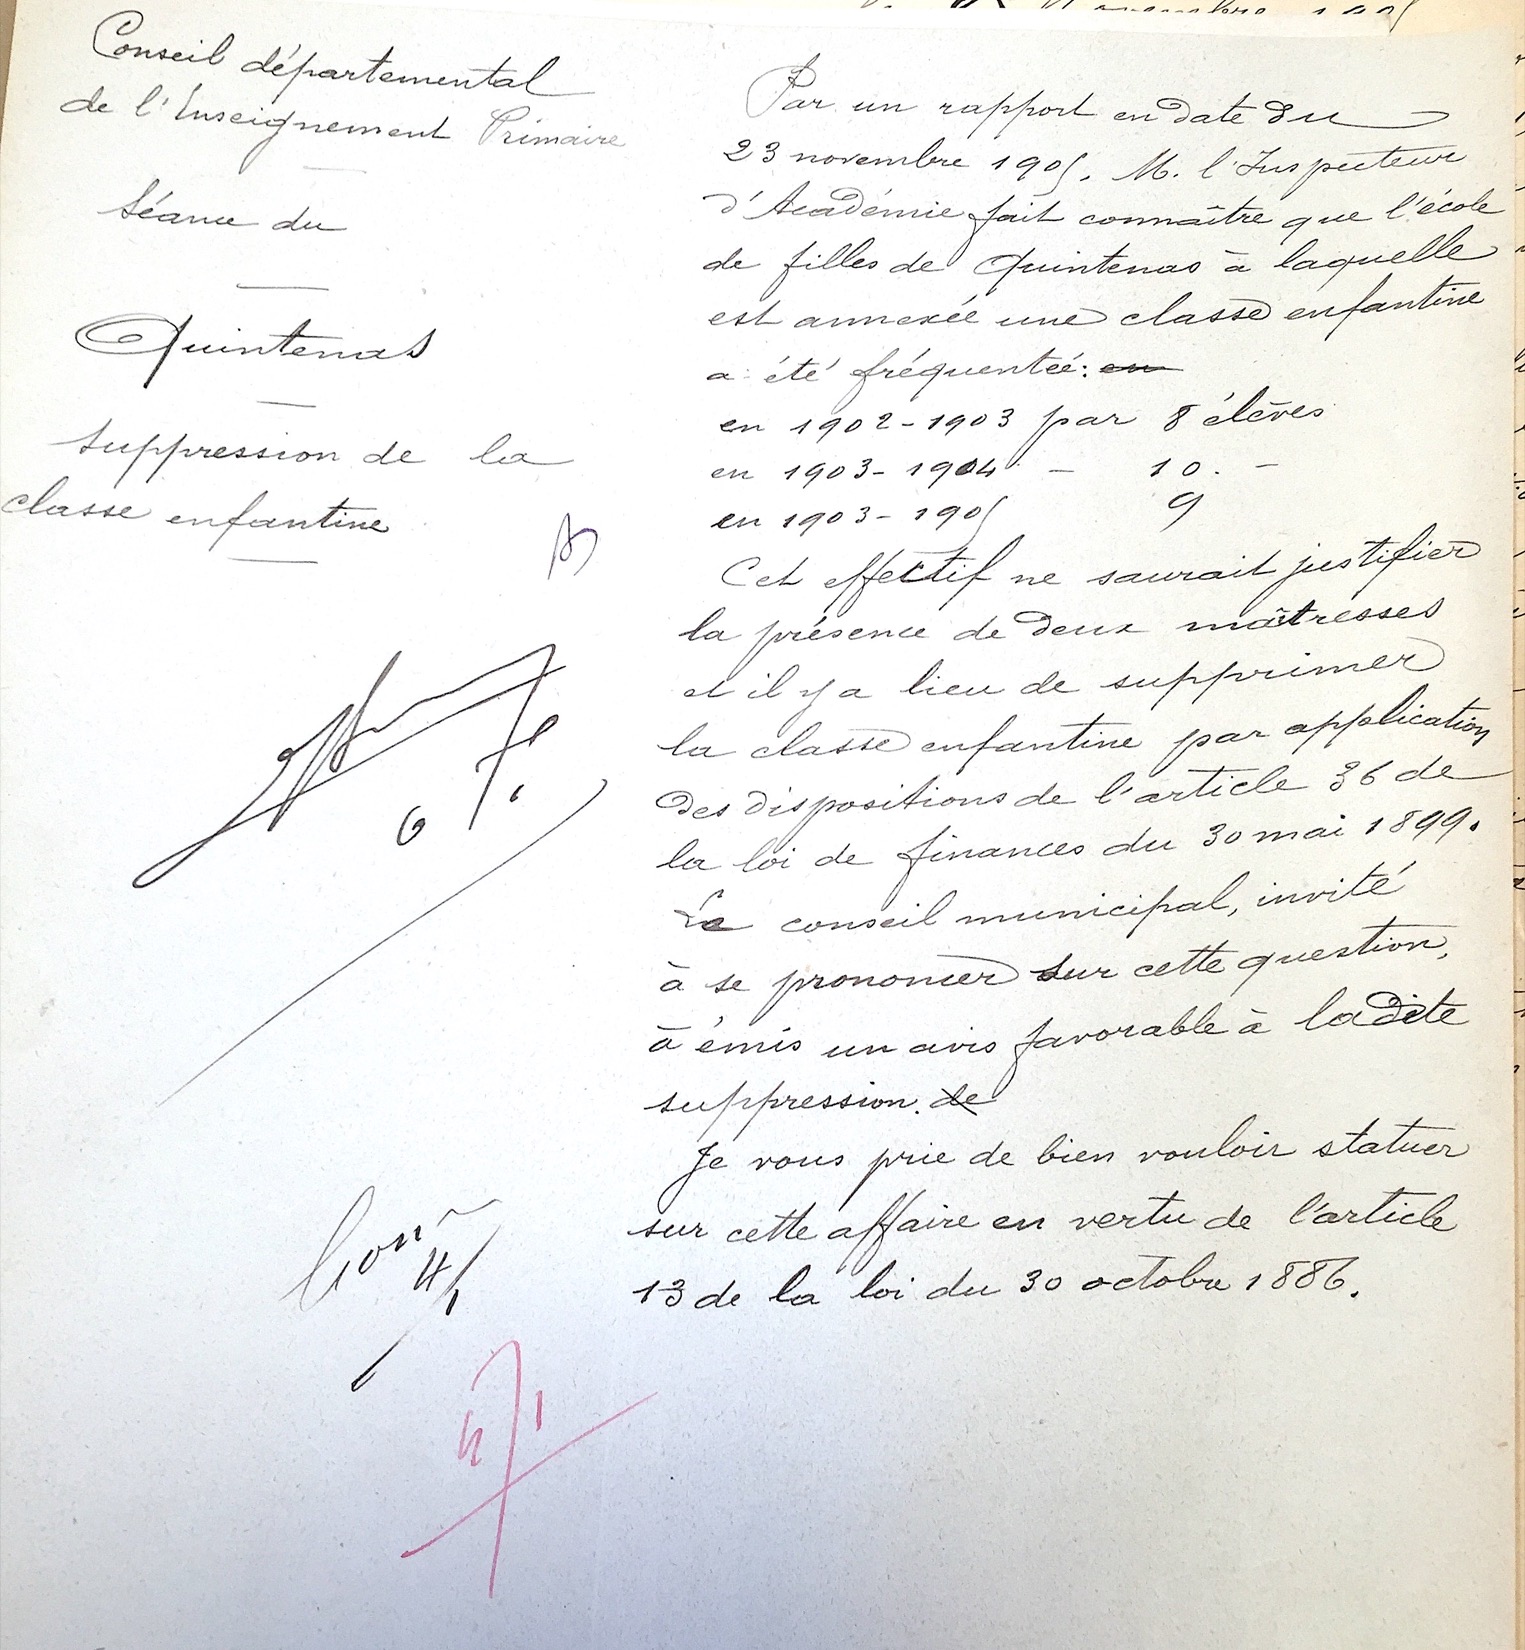 Conseil départemental
de l'Enseignement Primaire
Séance du
Quintenas
Suppression de la
classe enfantine
Par un rapport en date du
23 novembre 1905, M. l'Inspecteur
d'Académie fait connaître que l'école
de filles de Quintenas à laquelle
est annexée une classe enfantine
a été fréquentée: en
en 1902-1903 par 8 élèves
en 1903-1904 - 10. -
en 1903-1905 9
Cet effectif ne saurait justifier
la présence de deux maîtresses
et il y a lieu de supprimer
la classe enfantine par application
des dispositions de l'article 36 de
la loi de finances du 30 mai 1899.
Le conseil municipal, invité
à se prononcer sur cette question,
à émis un avis favorable à ladite
suppression. de
Je vous prie de bien vouloir statuer
sur cette affaire en vertu de l'article
13 de la loi du 30 octobre 1886.